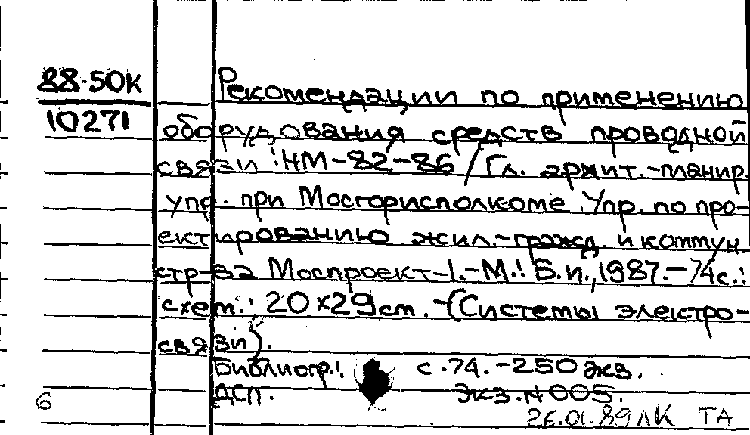 88-50К
10271
Рекомендации по применению
оборудования средств проводной
связи: НМ-82-86 / Гл. архит.-планир.
упр. при Мосгорисполкоме. Упр. по про-
ектированию жил.-гражд. и коммун.
стр-ва Моспроект-1.-М.: Б.и., 1987.-74с.:
схем.: 20×29см. -(Системы электро-
связи).
Библиогр.: с.74. -250 экз.
ДСП. Экз.№005.
6
26.01.89 ЛК ТА